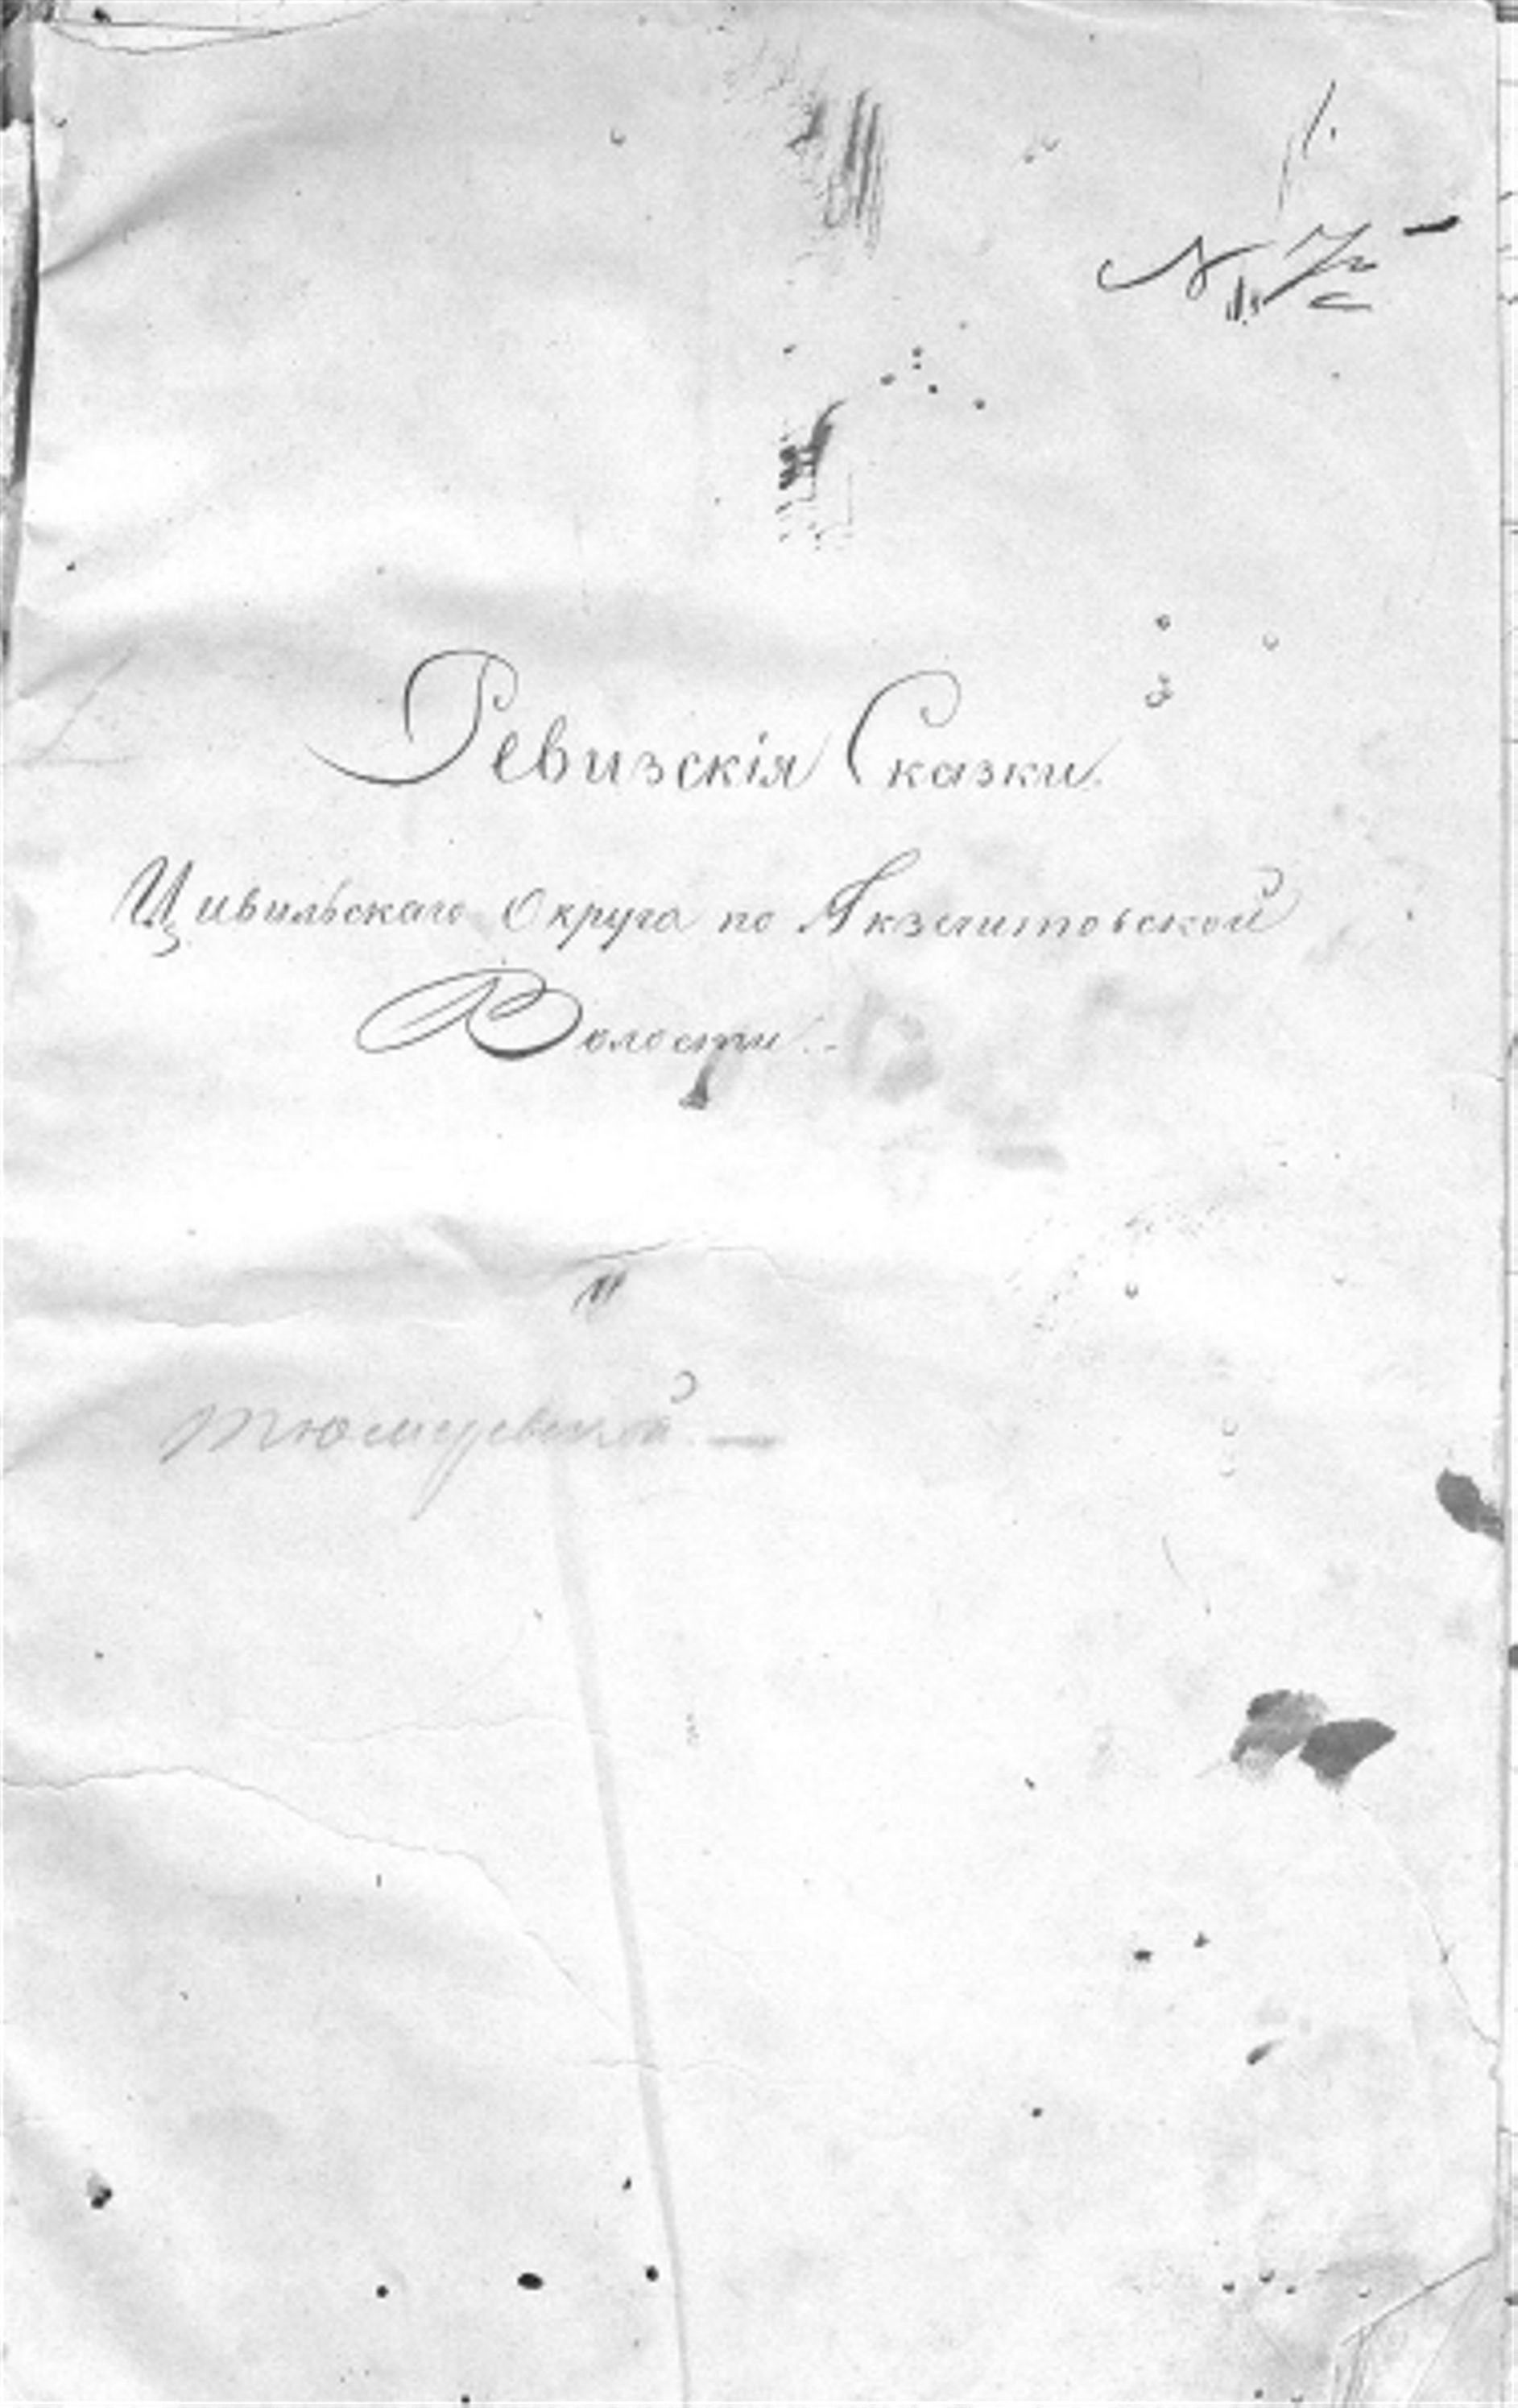 1.
N 7
Ревизскія Сказки
Цивильскаго Округа по Акзегитовской
Волости.
Тюмеревской. —